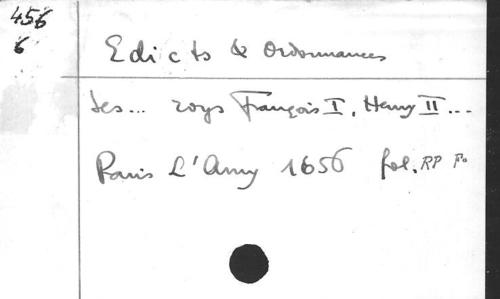 456
6
Edicts & Ordonnances
des... roys François I, Henry II...
Paris L'Amy 1656 fol. RP Fo